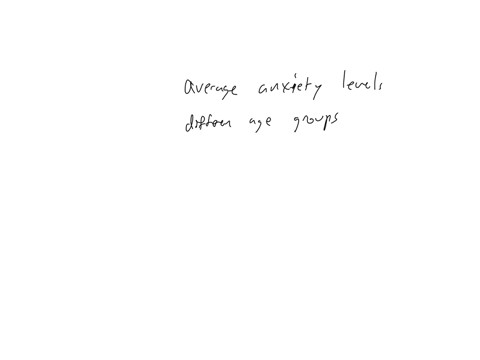 average anxiety levels
differen age groups